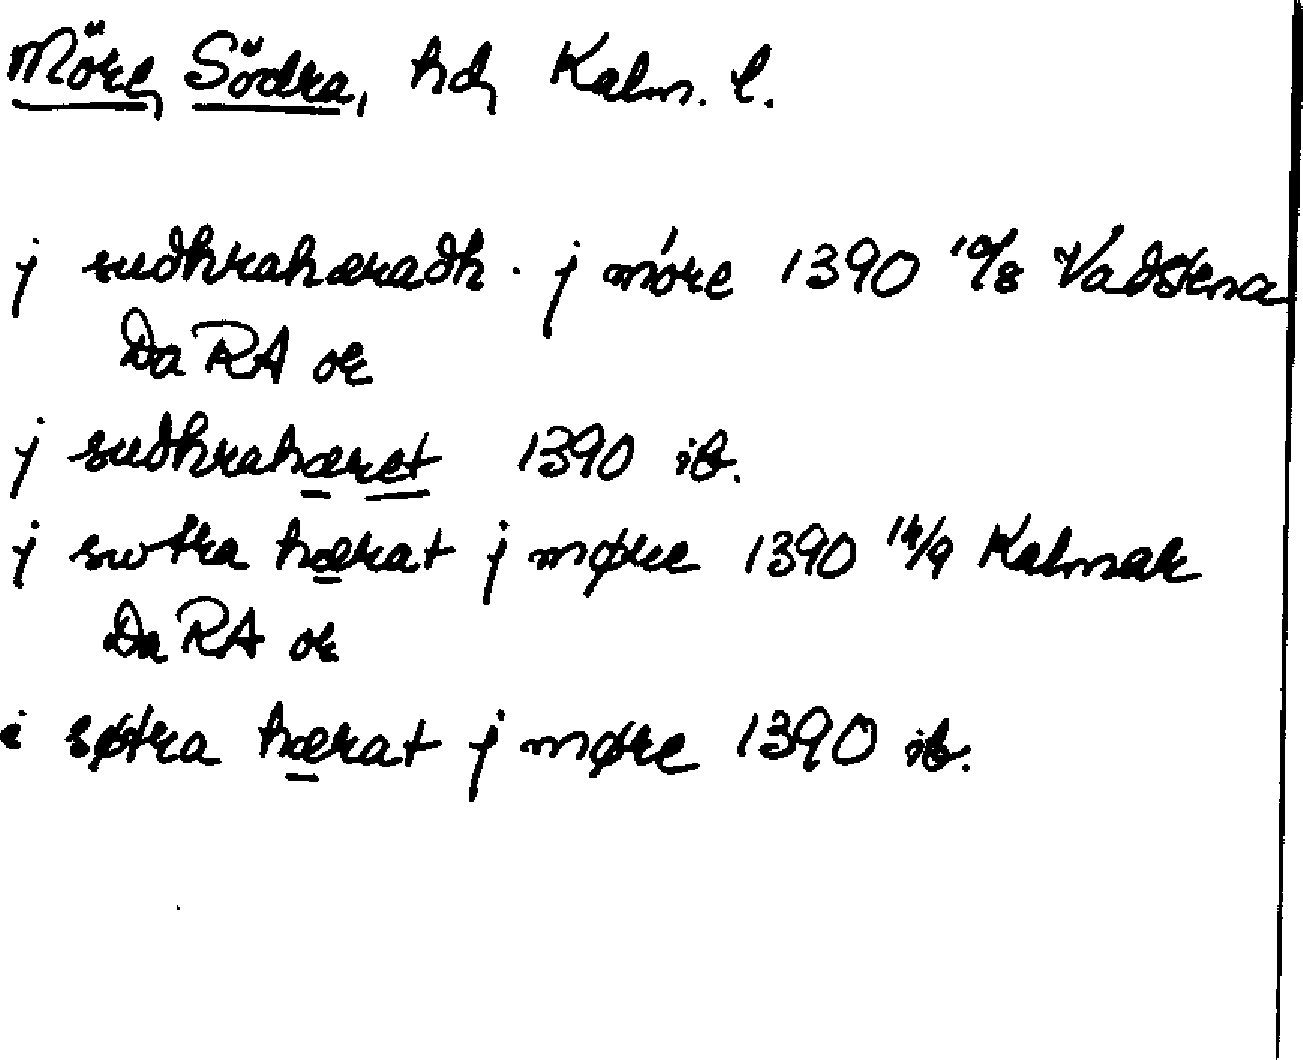 Möre, Södra, hd, Kalm. l.
j sudhrahæradh. j móre 1390 10/8 Vadstena
Da RA or
j sudhrahæret 1390 ib.
j swtra hærat j møre 1390 14/9 Kalmar
Da RA or
i søtra hærat j møre 1390 ib.